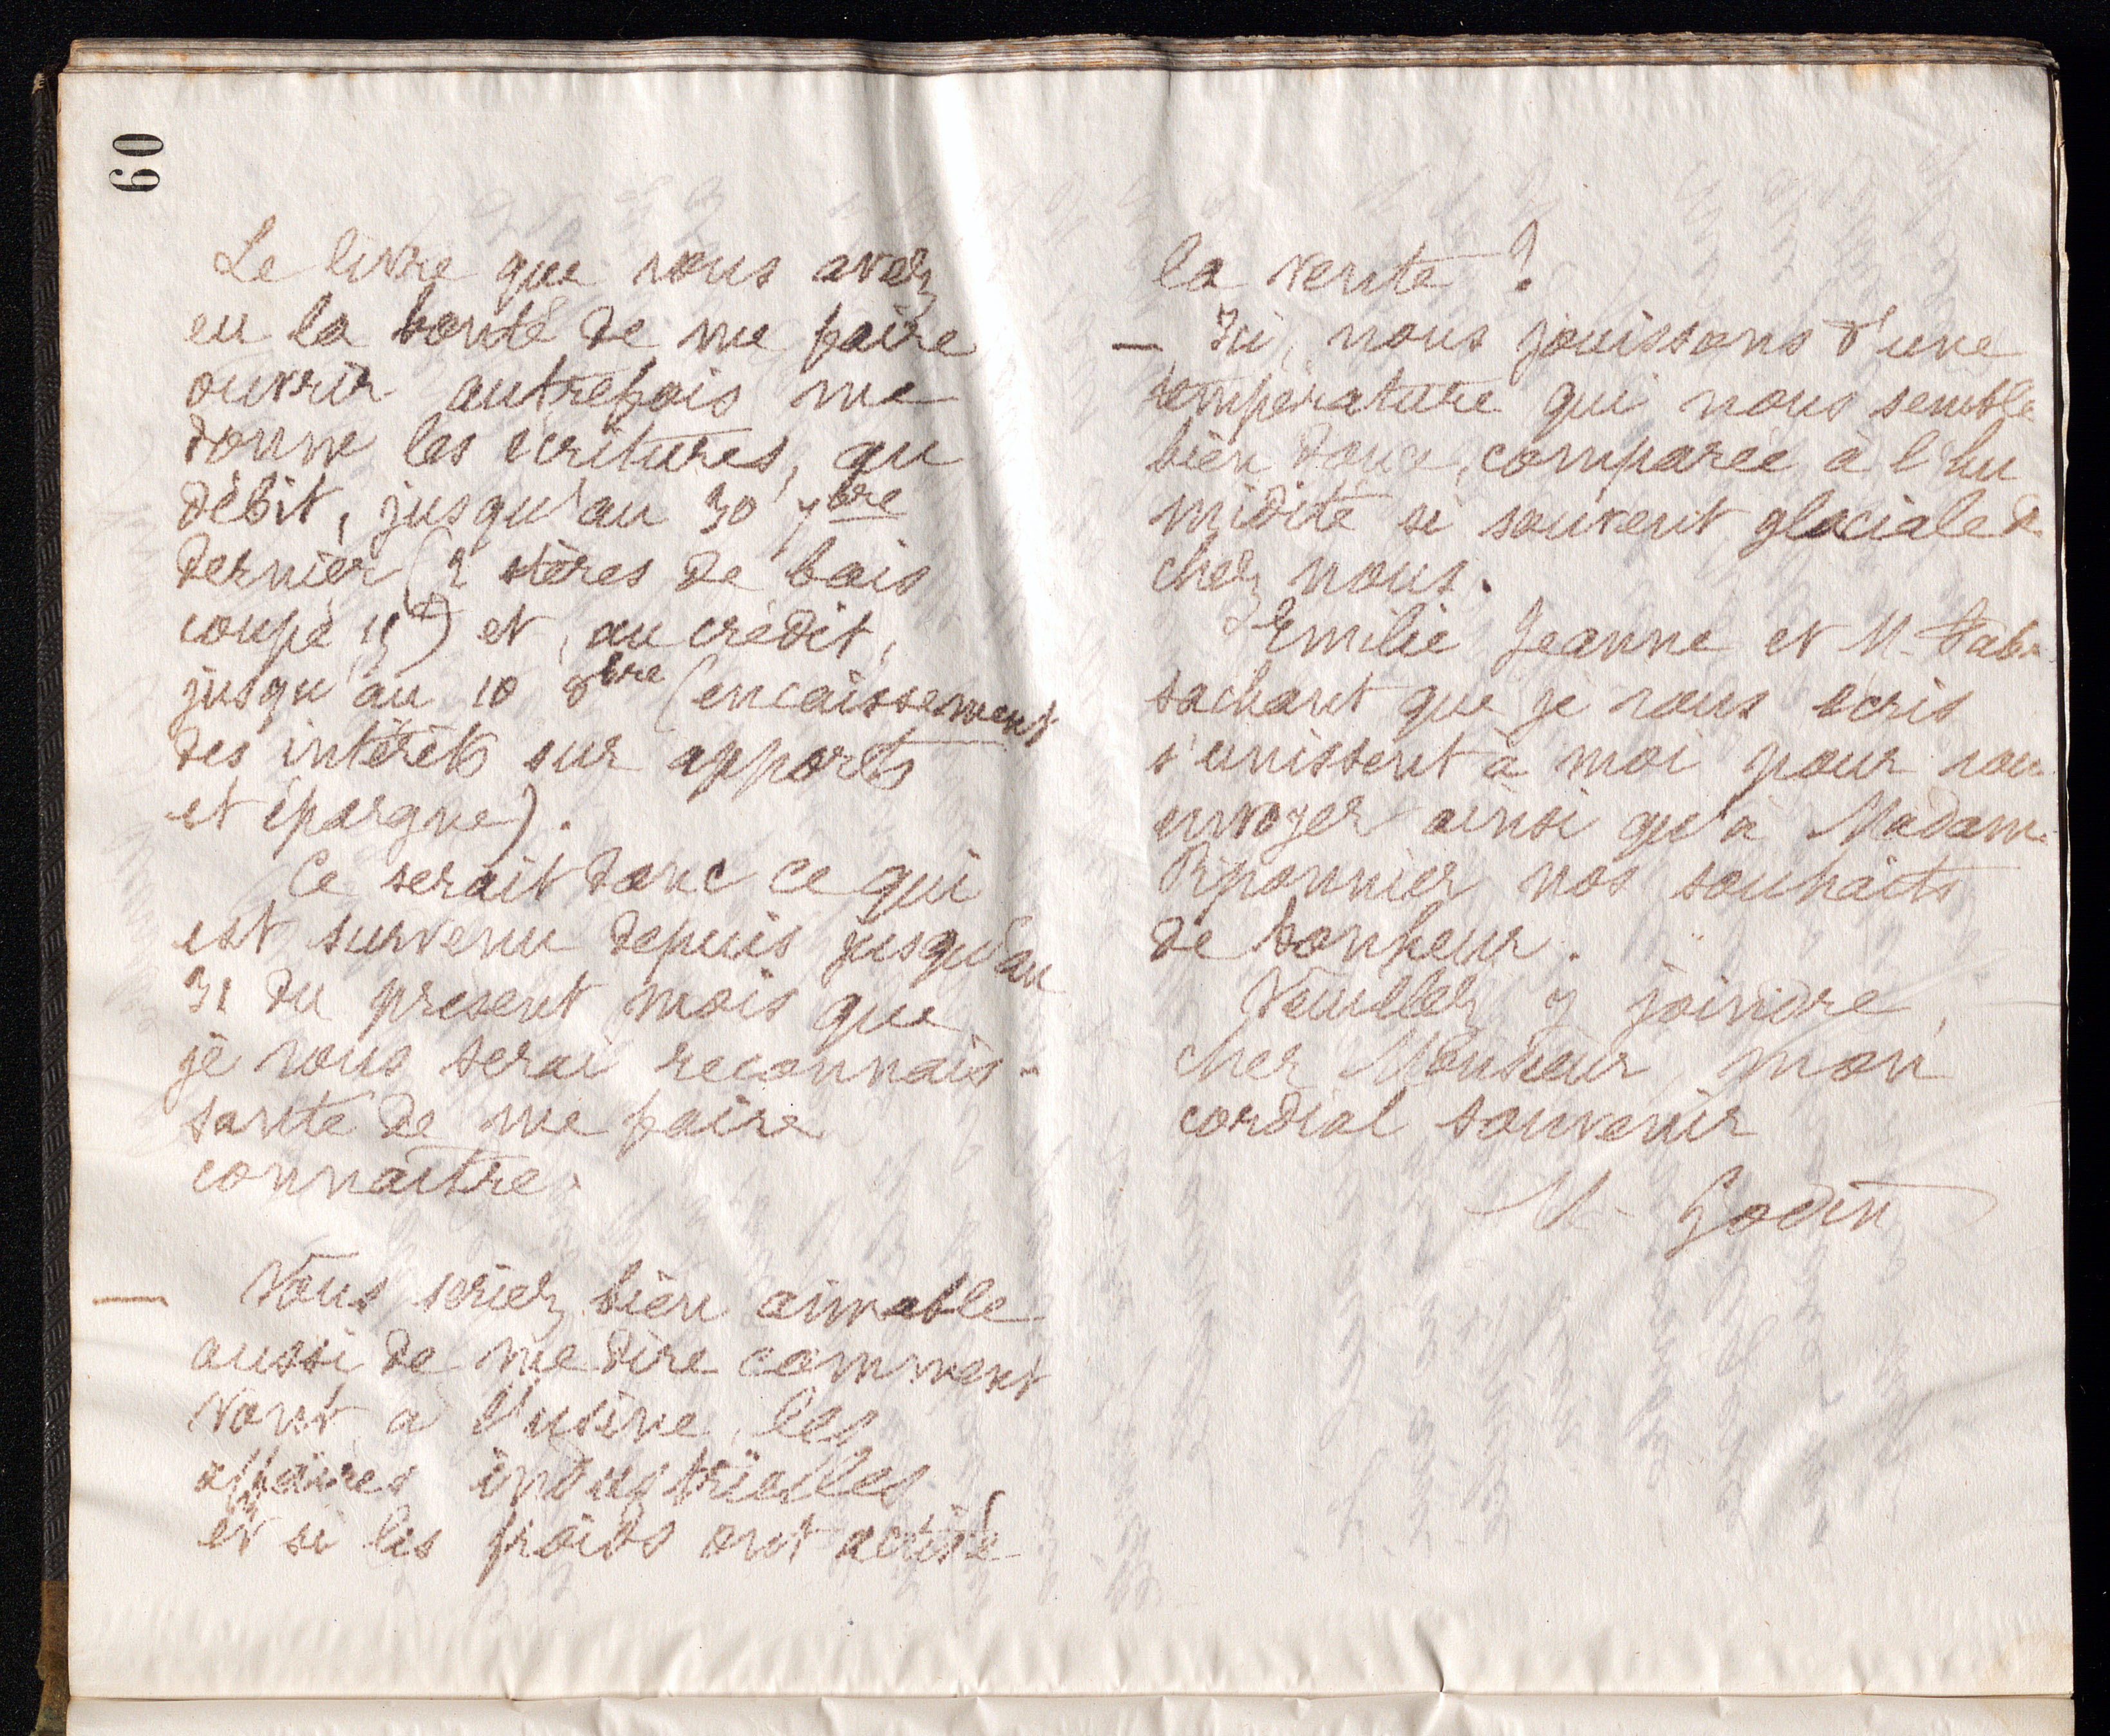 60
Le livre que vous avez
eu la bonté de me faire
ouvrir autrefois me
donne les écritures, au
débit, jusqu'au 30 7bre
dernier (2 stères de bois
coupé 15f) et, au crédit,
jusqu'au 10 8bre (encaissement
des intérêts sur apports
et épargne).
Ce serait donc ce qui
est survenu depuis jusqu'au
31 du présent mois que
je vous serai reconnais-
sante de me faire
connaître.
— Vous seriez bien aimable
aussi de me dire comment
vont à l'usine les
affaires industrielles
et si les froids ont activé
la vente ?
— Ici, nous jouissons d'une
température qui nous semble
bien douce, comparée à l'hu
midité si souvent glaciale de
chez nous.
Emilie Jeanne et M. Fabre
sachant que je vous écris
s'unissent à moi pour vous
envoyer ainsi qu'à Madame
Piponnier nos souhaits
de bonheur.
Veuillez y joindre,
cher Monsieur, mon
cordial souvenir
Me Godin